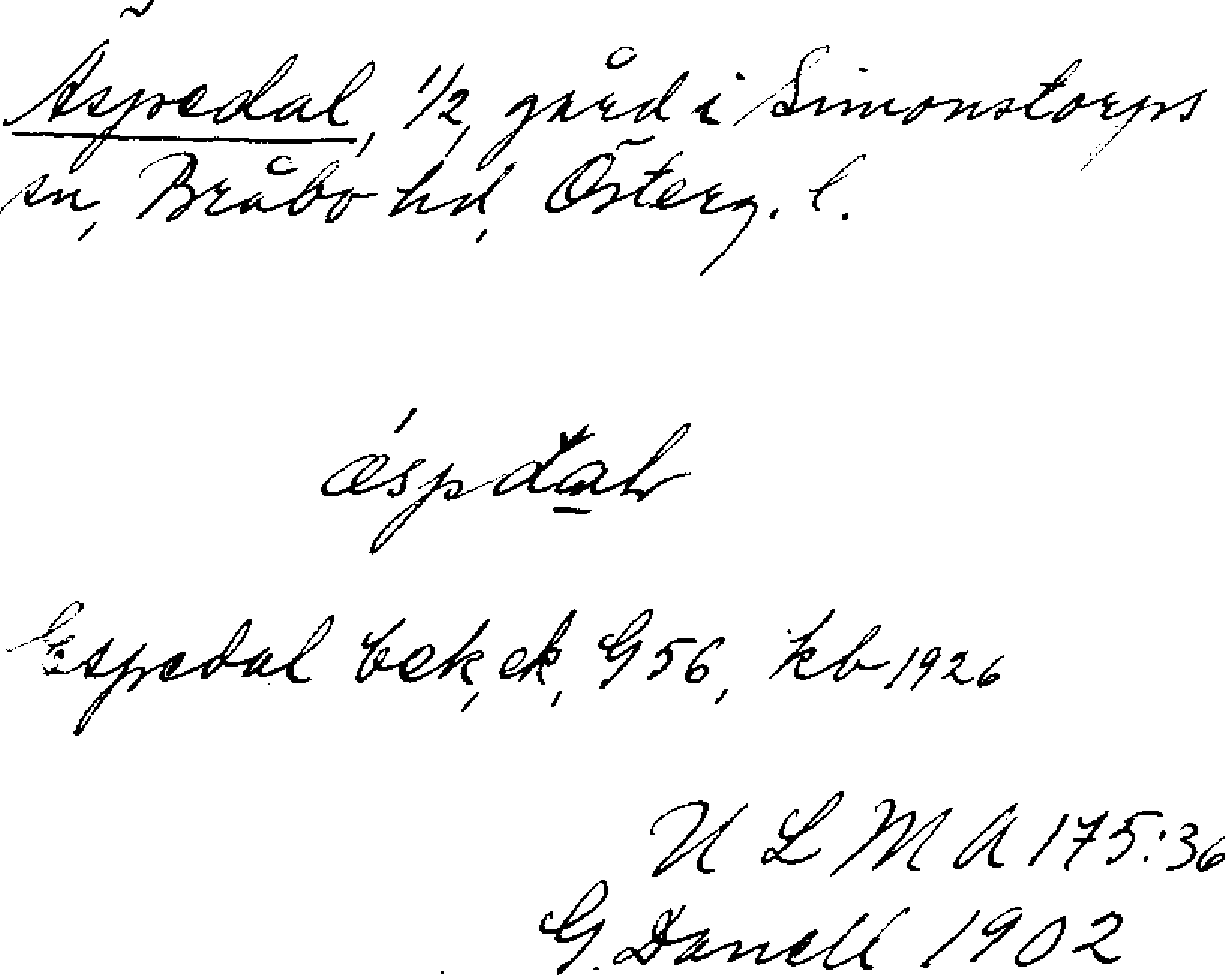 Äspedal, 1/2 gård i Simonstorps
sn, Bråbo hd, Österg. l.
Espedal bek, ek, G 56, kb 1926
U L M A 175:36
G. Danell 1902